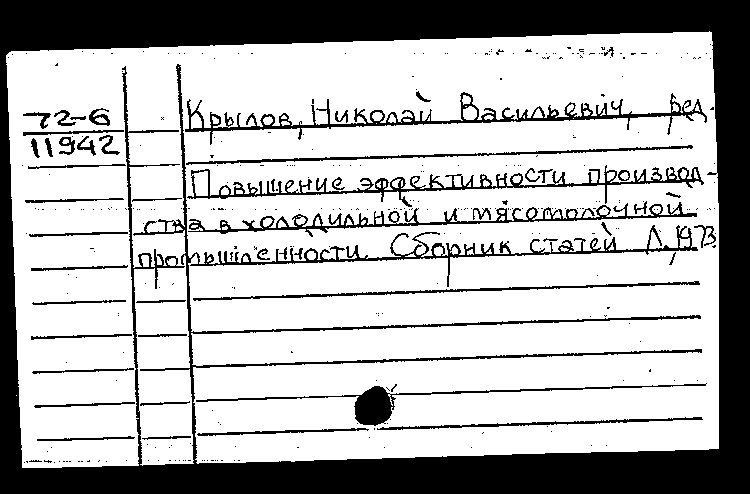 72-6
11942
Крылов, Николай Васильевич, ред.
Повышение эффективности производ-
ства в холодильной и мясомолочной
промышленности. Сборник статей Л., 1973